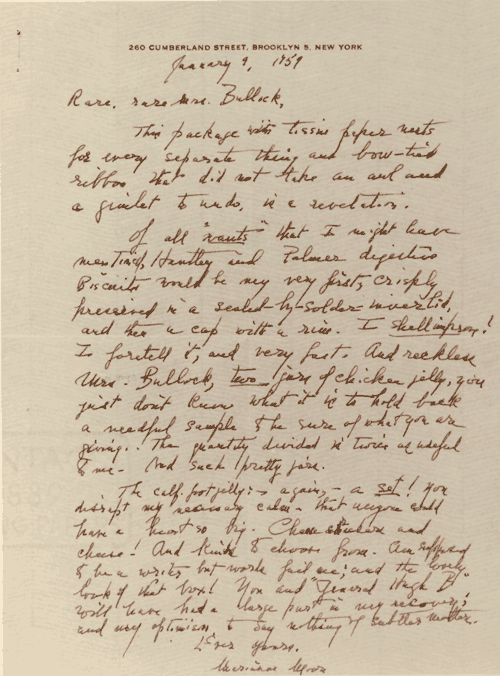 260 CUMBERLAND STREET, BROOKLYN 5, NEW YORK
January 9, 1959
Rare, rare Mrs. Bullock,
This package with tissue paper nests
for every separate thing and bow-tied
ribbon that did not take an awl and
a gimlet to undo, is a revelation.
Of all "wants" that I might have
mentioned, Huntley and Palmer digestive
Biscuits would be my very first, crisply
preserved in a sealed-by-solder inner lid,
and then a cap with a rim. I shall improve!
I foretell it, and very fast. And reckless
Mrs. Bullock, two jars of chicken jelly, you
just don't know what it is to hold back
a needful sample to be sure of what you are
giving.. The quantity divided is twice as useful
to me - And such pretty jars.
The calf-foot jelly:- again, - a set! You
disrupt my necessary calm - that anyone could
have a heart so big. Cheese and
cheese! And kinds to choose from. Am supposed
to be a writer but words fail me; and the "work,
look of that box! You and "General Hugh B"
will have had a large part in my recovery;
and my optimism to say nothing of subtler matter.
Ever yours,
Marianne Moore